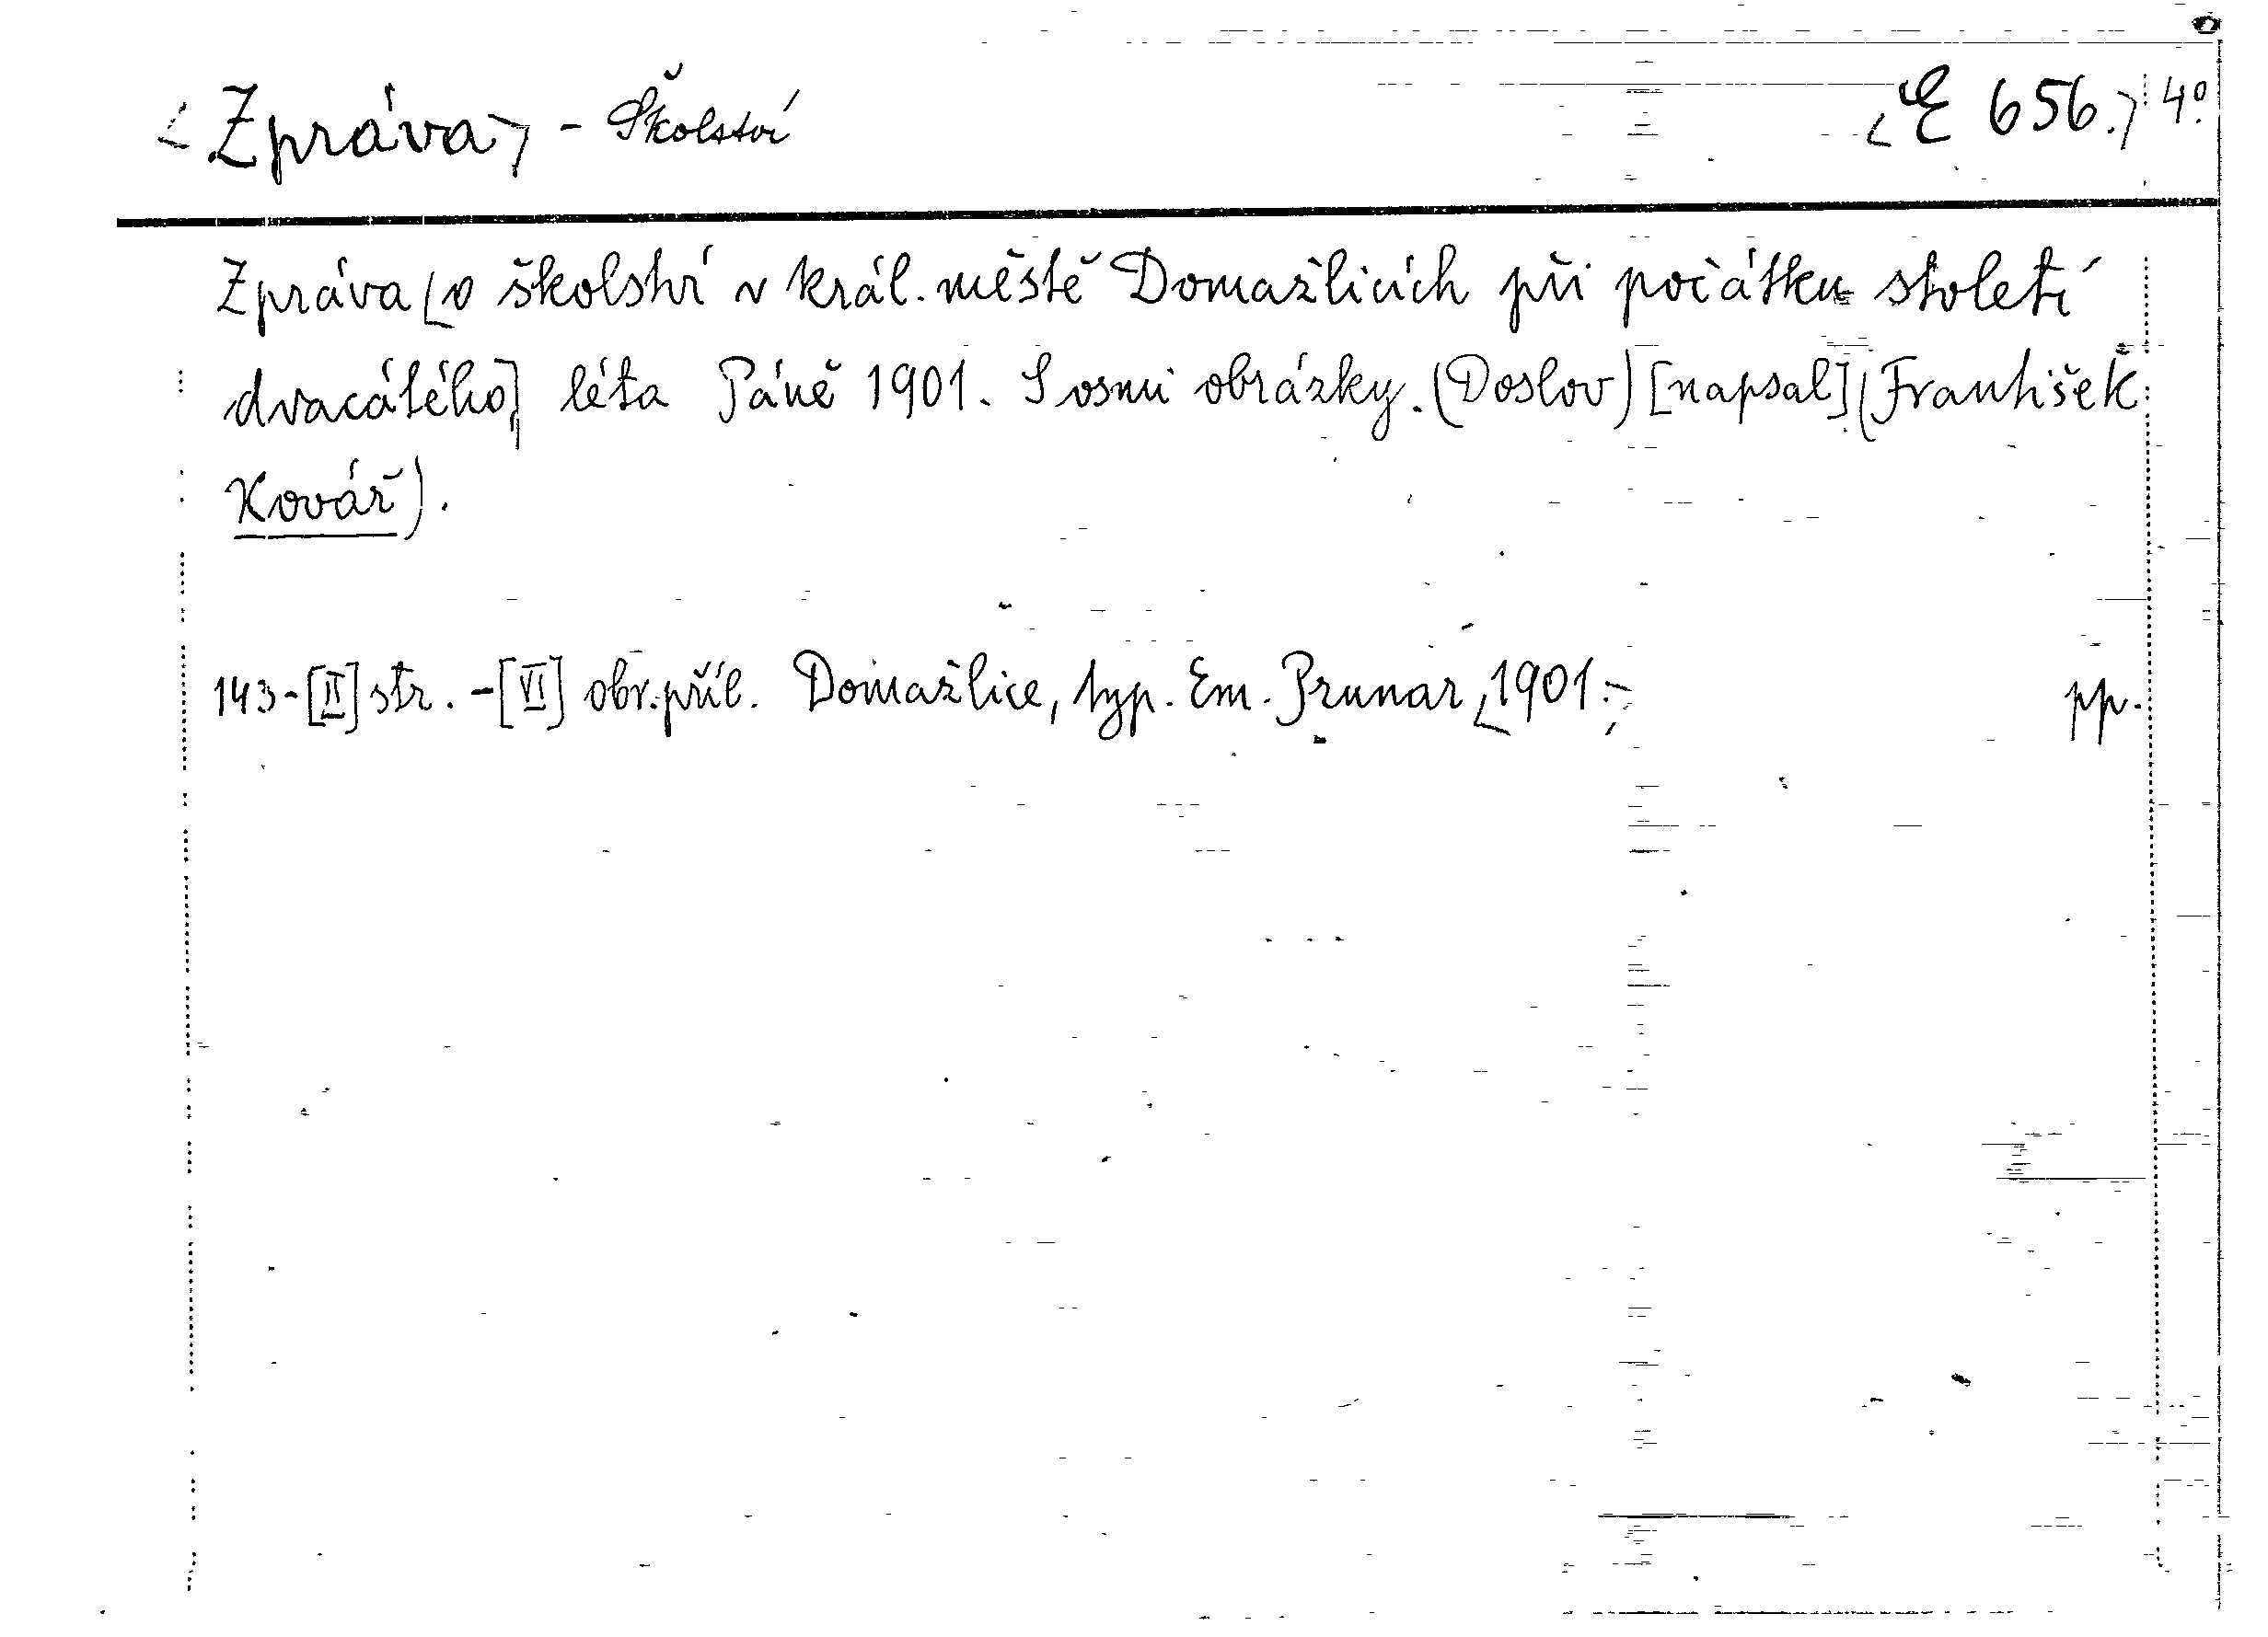 <Zpráva> - Školství <E 656.> 4°
Zpráva [o školství v král. městě Domažlicích při počátku století
dvacátého] léta Páně 1901. S osmi obrázky. (Doslov) [napsal] (František
Kovář).
143-[II] str. -[VI] obr. příl. Domažlice, typ. Em. Prunar <1901.> pp.